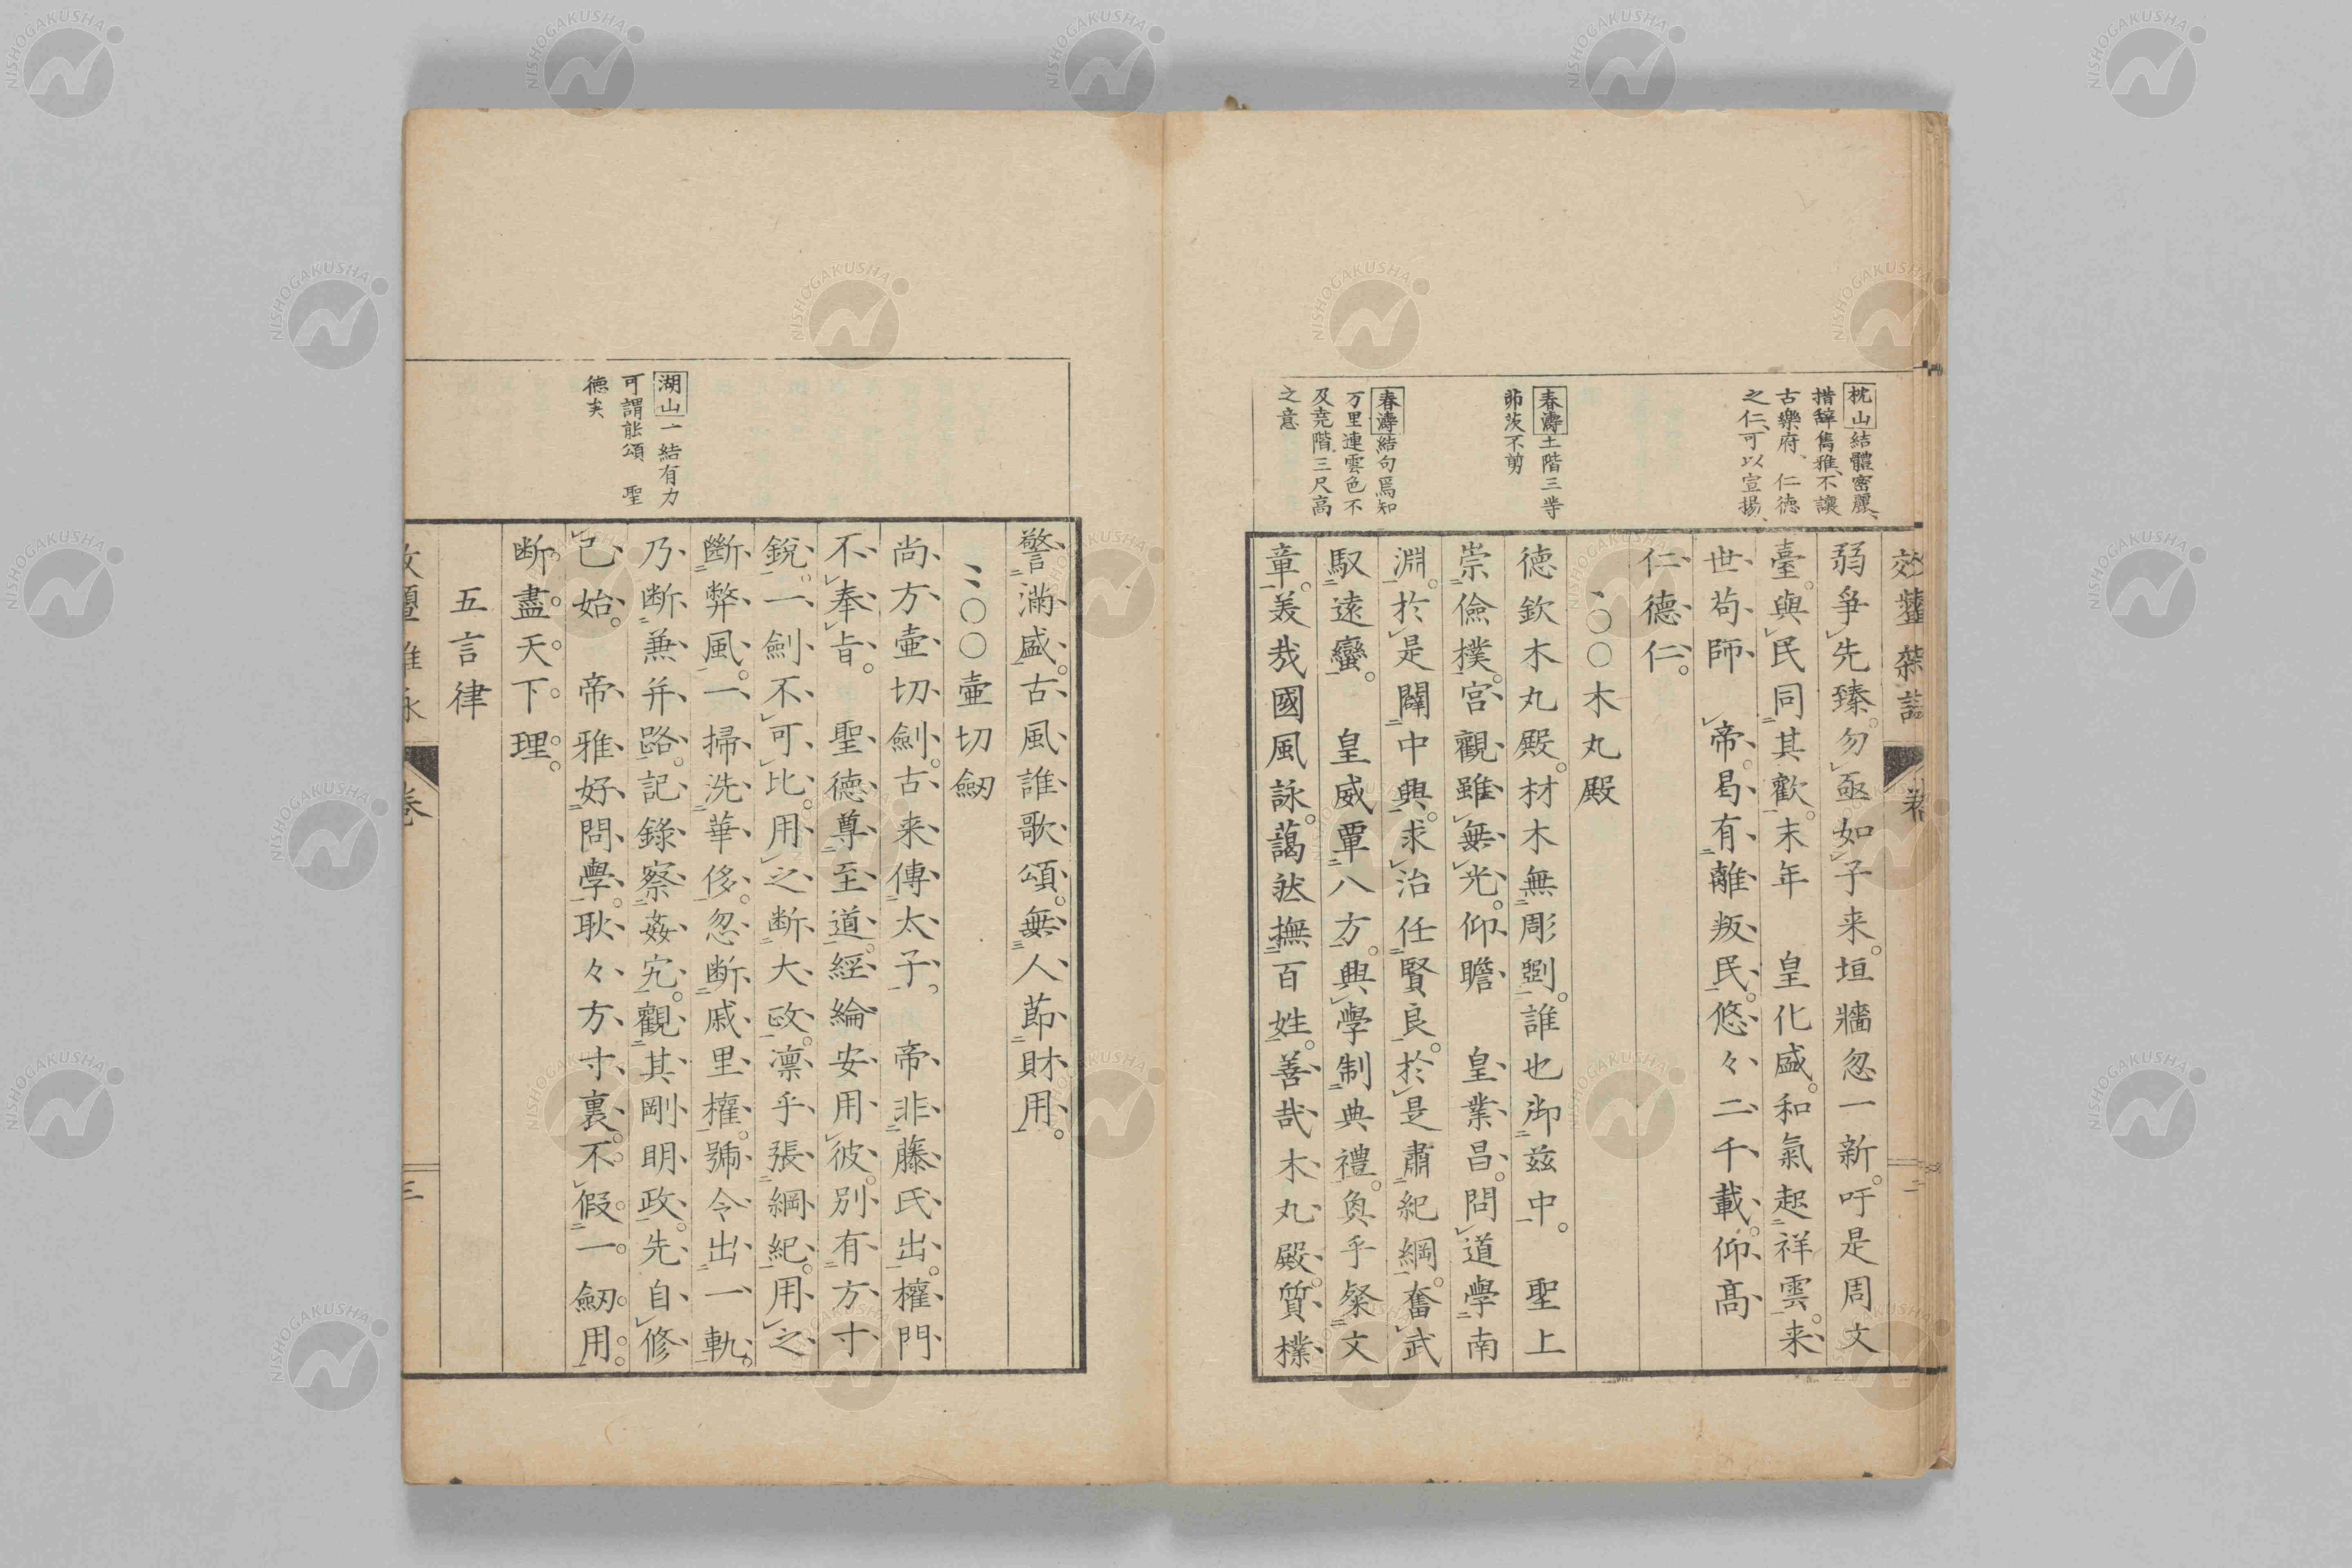 枕山結體密麗、
措辭雋雅、不讓
古樂府、仁德
之仁、可以宣揚、
春濤土階三等
茆茨不剪
春濤結句焉知
万里連雲色不
及尭階三尺高
之意
弱爭先臻。勿亟如子来。垣牆忽一新。吁是周文
臺。與民同其歡。末年 皇化盛。和氣起祥雲。来
世苟師 帝。曷有離叛民。悠々二千載。仰高
仁德仁。
〇〇木丸殿
德欽木丸殿。材木無彫劉。誰也御茲中。 聖上
崇儉樸。宮觀雖無光。仰瞻 皇業昌。問道學南
淵。於是闢中興。求治任賢良。於是肅紀綱。奮武
馭遠蠻。 皇威覃八方。興學制典禮。奐乎粲文
章。美哉國風詠。藹然撫百姓。善哉木丸殿。質樸
警滿盛。古風誰歌頌。無人節財用。
〇〇壷切劒
尚方壷切劍。古来傳太子。 帝非藤氏出。權門
不奉旨。 聖德尊至道。經綸安用彼。別有方寸
銳。一劍不可比。用之断大政。凛乎張綱紀。用之
斷弊風。一掃洗華侈。忽断戚里權。號令出一軌。
乃断兼并路。記錄察姦宄。觀其剛明政。先自修
己始。 帝雅好問學。耿々方寸裏。不假一劒用。
断盡天下理。
五言律
湖山一結有力
可謂能頌 聖
德矣
卷
三